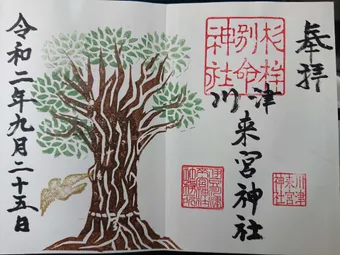 奉拝
杉桙
別命
神社
川津
来宮神社
川津
来宮
神社
令和二年九月二十五日